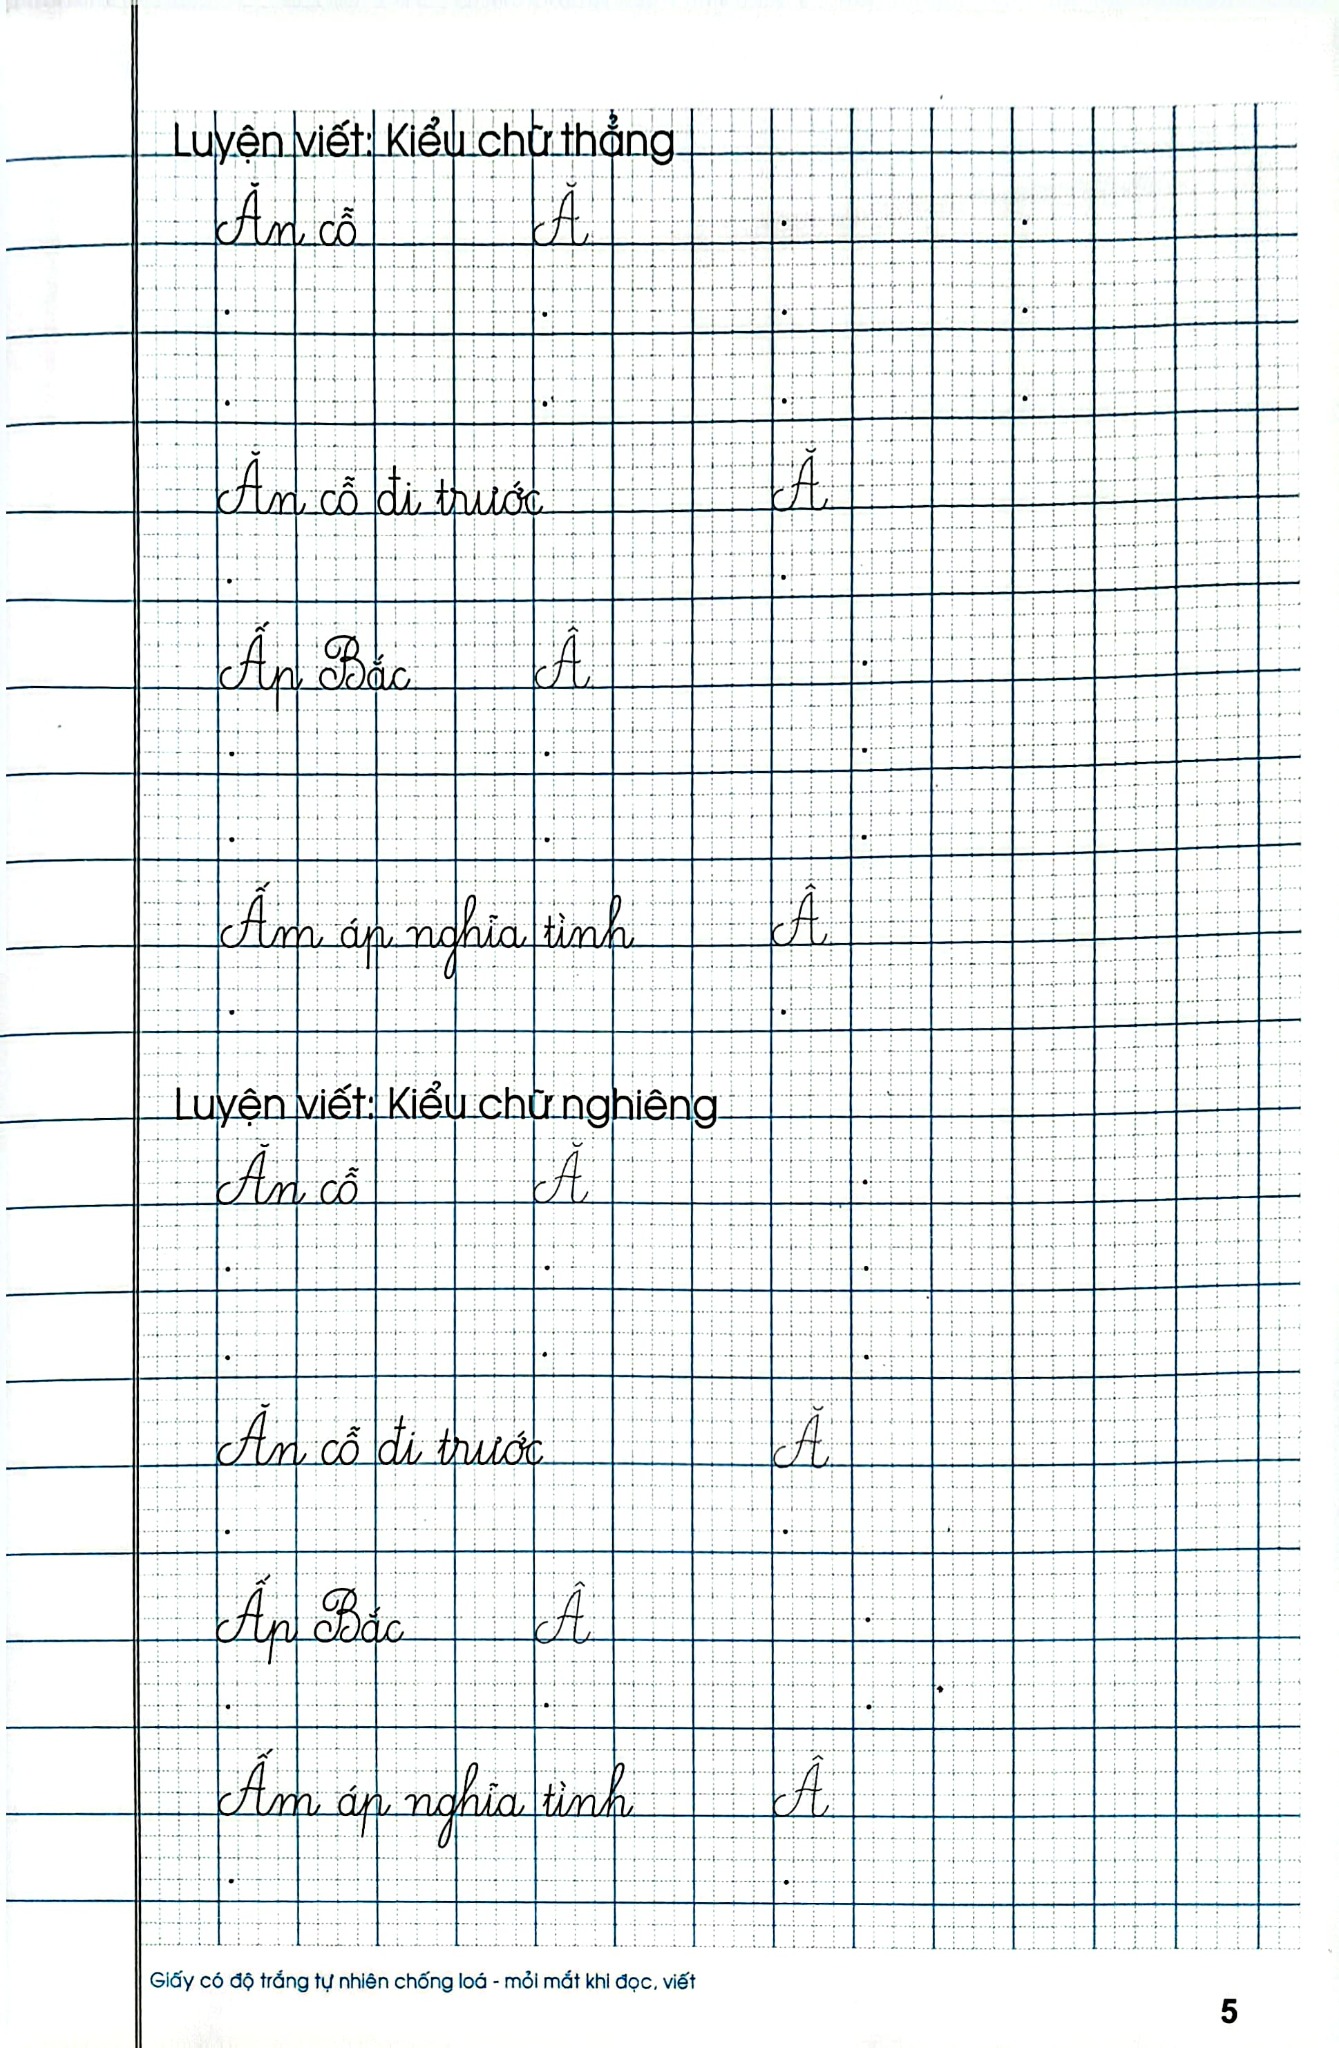 Luyện viết: Kiểu chữ thẳng
Ăn cỗ Ă
Ăn cỗ đi trước Ă
Ấp Bắc Â
Ấm áp nghĩa tình Â
Luyện viết: Kiểu chữ nghiêng
Ăn cỗ Ă
Ăn cỗ đi trước Ă
Ấp Bắc Â
Ấm áp nghĩa tình Â
Giấy có độ trắng tự nhiên chống loá - mỏi mắt khi đọc, viết
5